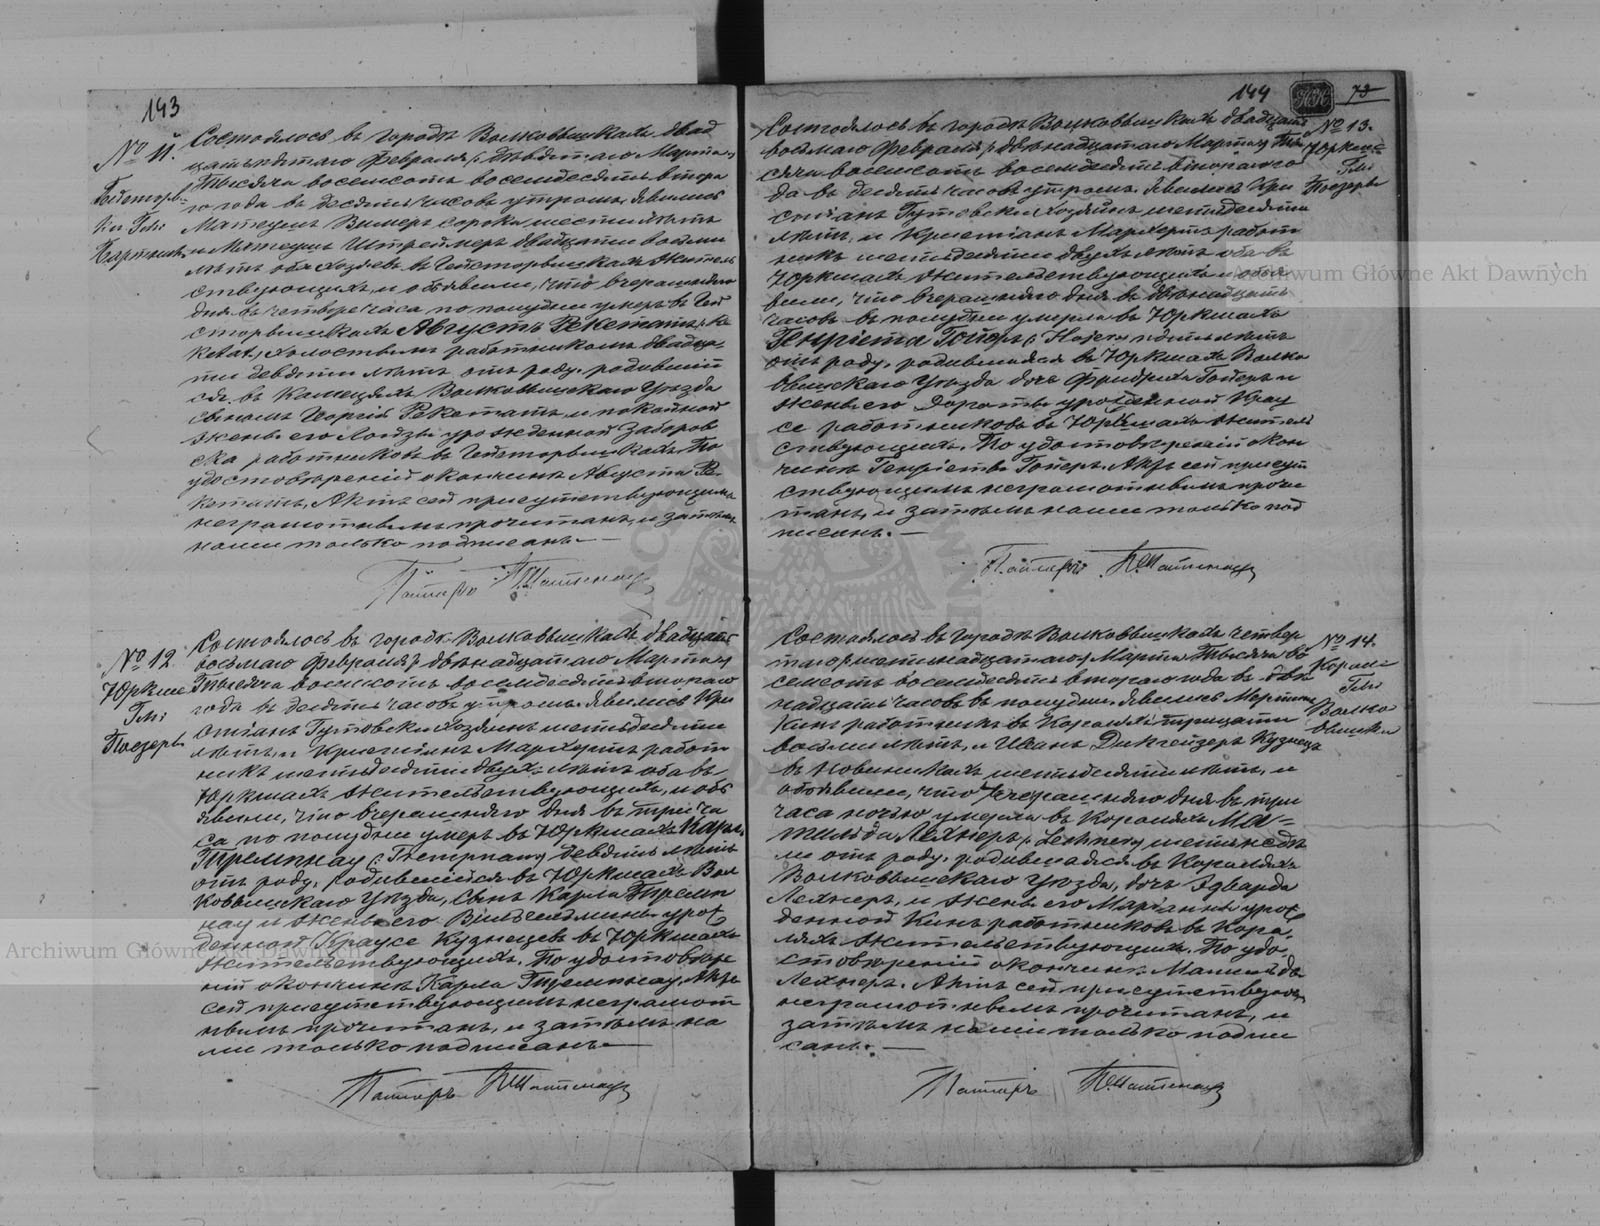 143
№ 11.
Состоялось въ городѣ Волковышкахъ двад
цать пятаго Февраля (девятаго Марта)
Тысяча восемсотъ восемдесятъ втора
го года въ десять часовъ утромъ. Явились
Матеушъ Вимеръ сорока шести лѣтъ
и Матеушъ Штреймеръ двадцати восьми
лѣтъ оба хозяева въ жительствующихъ
ствующихъ, и объявили, что вчерашняго
дня въ четыре часа по полудни умеръ въ
Августъ Рекетатъ, (Re
ketat) холостымъ работникомъ двадца
ти девяти лѣтъ отъ роду, родивший
ся въ Волковышскаго Уѣзда
сыномъ Георгія Рекетатъ, и покойной
жены его урожденной
работниковъ въ По
удостовѣреніи о кончинѣ Августа Ре
кетатъ, Актъ сей присутствующимъ
неграмотнымъ прочитанъ, и затѣмъ
нами только подписанъ.—
№ 12.
Юркше
Гм:
Поезеры
Состоялось въ городѣ Волковышкахъ двадцать
восьмаго Февраля (двѣнадцатаго Марта)
Тысяча восемсотъ восемдесятъ втораго
года въ десять часовъ утромъ. Явились Кри
стіанъ Гутовски хозяинъ шестьдесяти
лѣтъ, и Кристіанъ Маркертъ работ
никъ шестьдесяти двухъ лѣтъ оба въ
Юркшахъ жительствующіе, и объ
явили, что вчерашняго дня въ три ча
са по полудни умеръ въ Юркшахъ Карлъ
Тремпнау (Trempnau) девять лѣтъ
отъ роду, родившійся въ Юркшахъ Вол
ковышскаго Уѣзда, сынъ Карла Тремп
нау и жены его Вильгельмины урож
денной Краузе Кузнецовъ въ Юркшахъ
жительствующихъ. По удостовѣре
ніи о кончинѣ Карла Тремпнау, Актъ
сей присутствующимъ неграмот
нымъ прочитанъ, и затѣмъ на
ми только подписанъ.—
144
73
№ 13.
Юркше
Гм:
Поезеры
Состоялось въ городѣ Волковышкахъ двадцать
восьмаго Февраля (двѣнадцатаго Марта) Ты
сяча восемсотъ восемдесятъ втораго го
да въ десять часовъ утромъ. Явились Кри
стіанъ Гутовски хозяинъ шестьдесяти
лѣтъ, и Кристіанъ Маркертъ работ
никъ шестьдесяти двухъ лѣтъ оба въ
Юркшахъ жительствующихъ и объя
вили, что вчерашняго дня въ двѣнадцать
часовъ въ полудни умерла въ Юркшахъ
Генріета пять лѣтъ
отъ роду, родившаяся въ Юркшахъ Волко
вышскаго Уѣзда дочь Фридриха и
жены его Дороты урожденной Крау
се работниковъ въ Юркшахъ жительс
ствующихъ. По удостовѣреніи о кон
чинѣ Генріеты Актъ сей присут
ствующимъ неграмотнымъ прочи
танъ, и затѣмъ нами только под
писанъ.—
№ 14.
Корали
Гм:
Волко
вышки
Состоялось въ городѣ Волковышкахъ четвер
таго (шестнадцатаго) Марта Тысяча во
семсотъ восемдесятъ втораго года въ двѣ
надцать часовъ въ полудни. Явились Мартинъ
Кинъ работникъ въ Кораляхъ тридцати
восьми лѣтъ, и Иванъ Кузнецъ
въ шестьдесяти лѣтъ, и
объявили, что вчерашняго дня въ три
часа ночью умерла въ Кораляхъ Ма-
тильда Лехнеръ, (Lechner) шести недѣ
ли отъ роду, родившаяся въ Кораляхъ
Волковышскаго Уѣзда, дочь Эдварда
Лехнеръ, и жены его Маріанны урож
денной Кинъ работниковъ въ Кора
ляхъ жительствующихъ. По удо
стовѣреніи о кончинѣ Матильды
Лехнеръ. Актъ сей присутствующ
неграмотнымъ прочитанъ, и
затѣмъ нами только подпи
санъ.—
Archiwum Główne Akt Dawnych
Archiwum Główne Akt Dawnych